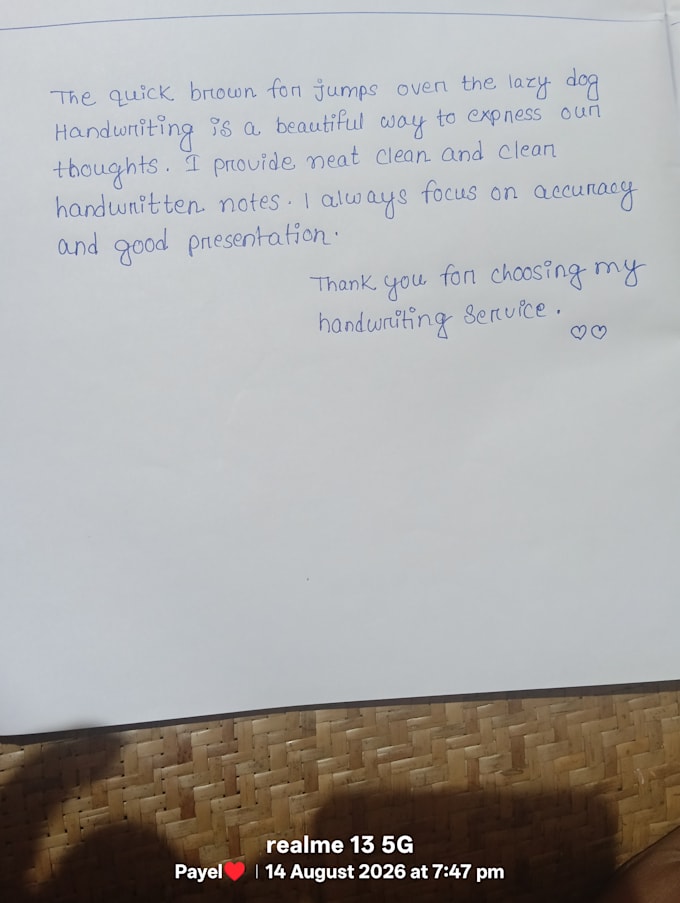 The quick brown for jumps over the lazy dog
Handwriting is a beautiful way to express our
thoughts. I provide neat clean and clean
handwritten notes. I always focus on accuracy
and good presentation.
Thank you for choosing my
handwriting service.
realme 13 5G
Payel❤️ | 14 August 2026 at 7:47 pm